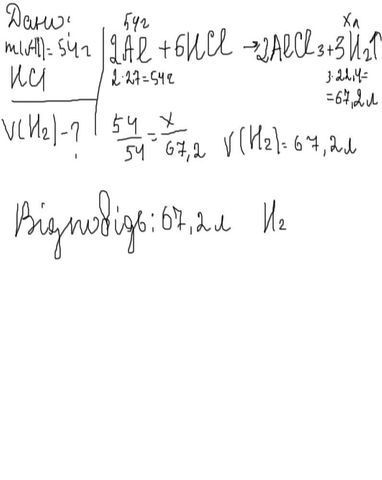 Дано:
m(Al)=54г
HCl
V(H₂)-?
54г xл
2Al + 6HCl → 2AlCl₃ + 3H₂↑
2·27=54г 3·22,4=
=67,2л
54/54 = x/67,2 V(H₂)=67,2л
Відповідь: 67,2л H₂